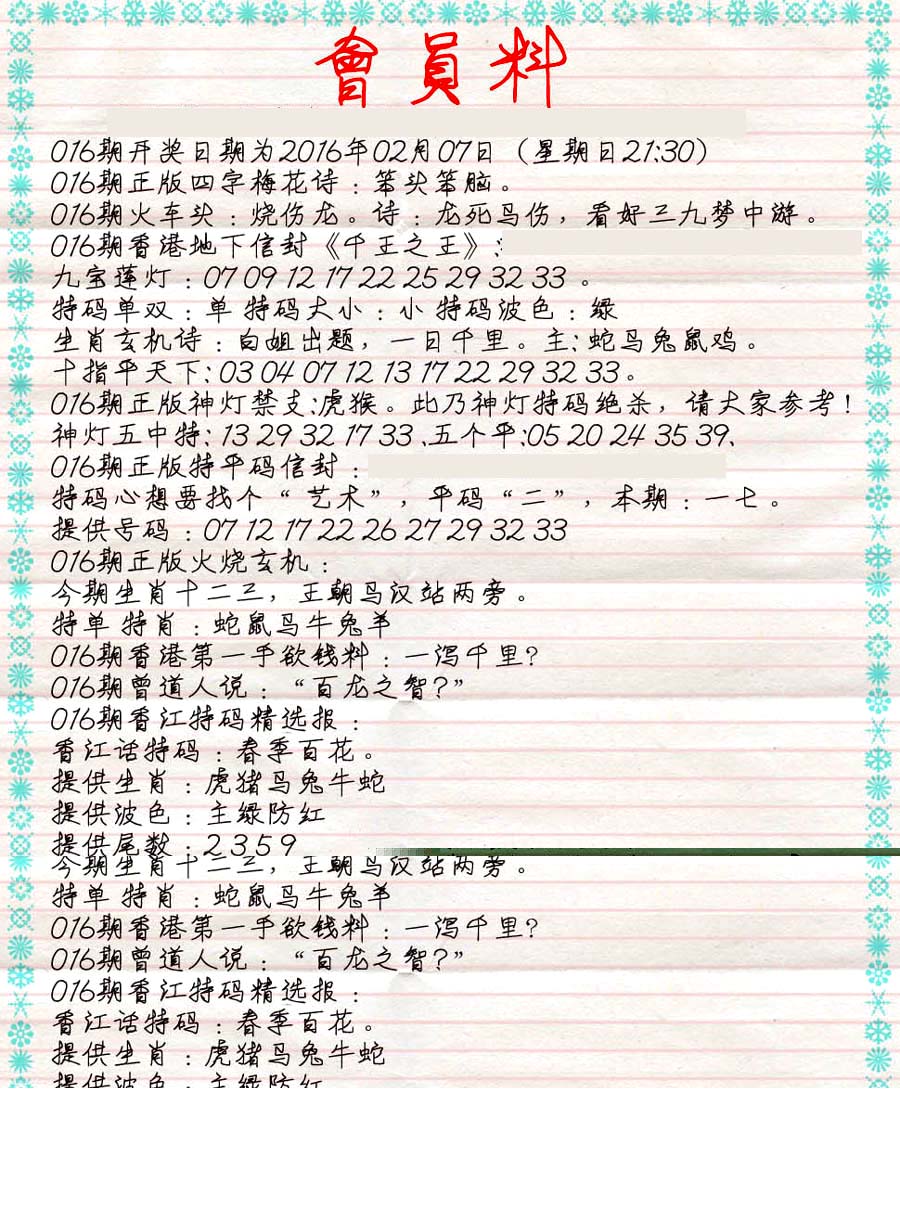 會員料
016期开奖日期为2016年02月07日（星期日21:30）
016期正版四字梅花诗：笨头笨脑。
016期火车头：烧伤龙。诗：龙死马伤，看好三九梦中游。
016期香港地下信封《千王之王》:
九宝莲灯：07 09 12 17 22 25 29 32 33 。
特码单双：单 特码大小：小 特码波色：绿
生肖玄机诗：白姐出题，一日千里。主:蛇马兔鼠鸡。
十指平天下:03 04 07 12 13 17 22 29 32 33。
016期正版神灯禁支:虎猴。此乃神灯特码绝杀，请大家参考！
神灯五中特:13 29 32 17 33、五个平:05 20 24 35 39、
016期正版特平码信封：
特码心想要找个“艺术”，平码“二”，本期：一七。
提供号码：07 12 17 22 26 27 29 32 33
016期正版火烧玄机：
今期生肖十二三，王朝马汉站两旁。
特单 特肖：蛇鼠马牛兔羊
016期香港第一手欲钱料：一泻千里?
016期曾道人说：“百龙之智?”
016期香江特码精选报：
香江话特码：春季百花。
提供生肖：虎猪马兔牛蛇
提供波色：主绿防红
提供尾数：2 3 5 9
今期生肖十二三，王朝马汉站两旁。
特单 特肖：蛇鼠马牛兔羊
016期香港第一手欲钱料：一泻千里?
016期曾道人说：“百龙之智?”
016期香江特码精选报：
香江话特码：春季百花。
提供生肖：虎猪马兔牛蛇
提供波色：主绿防红